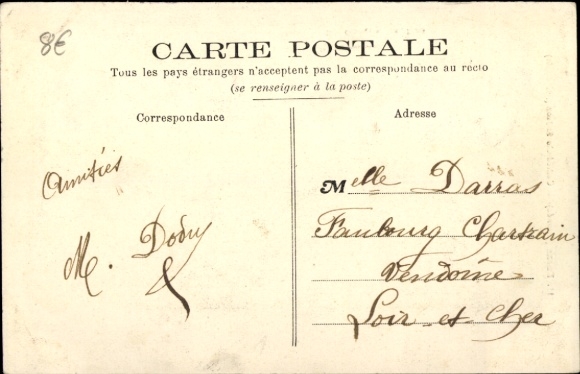 8€
CARTE POSTALE
Tous les pays étrangers n'acceptent pas la correspondance au récto
(se renseigner à la poste)
Correspondance
Adresse
Amitiés
M. Dodu
Melle Darras
Faubourg Chartrain
Vendôme
Loir-et-Cher